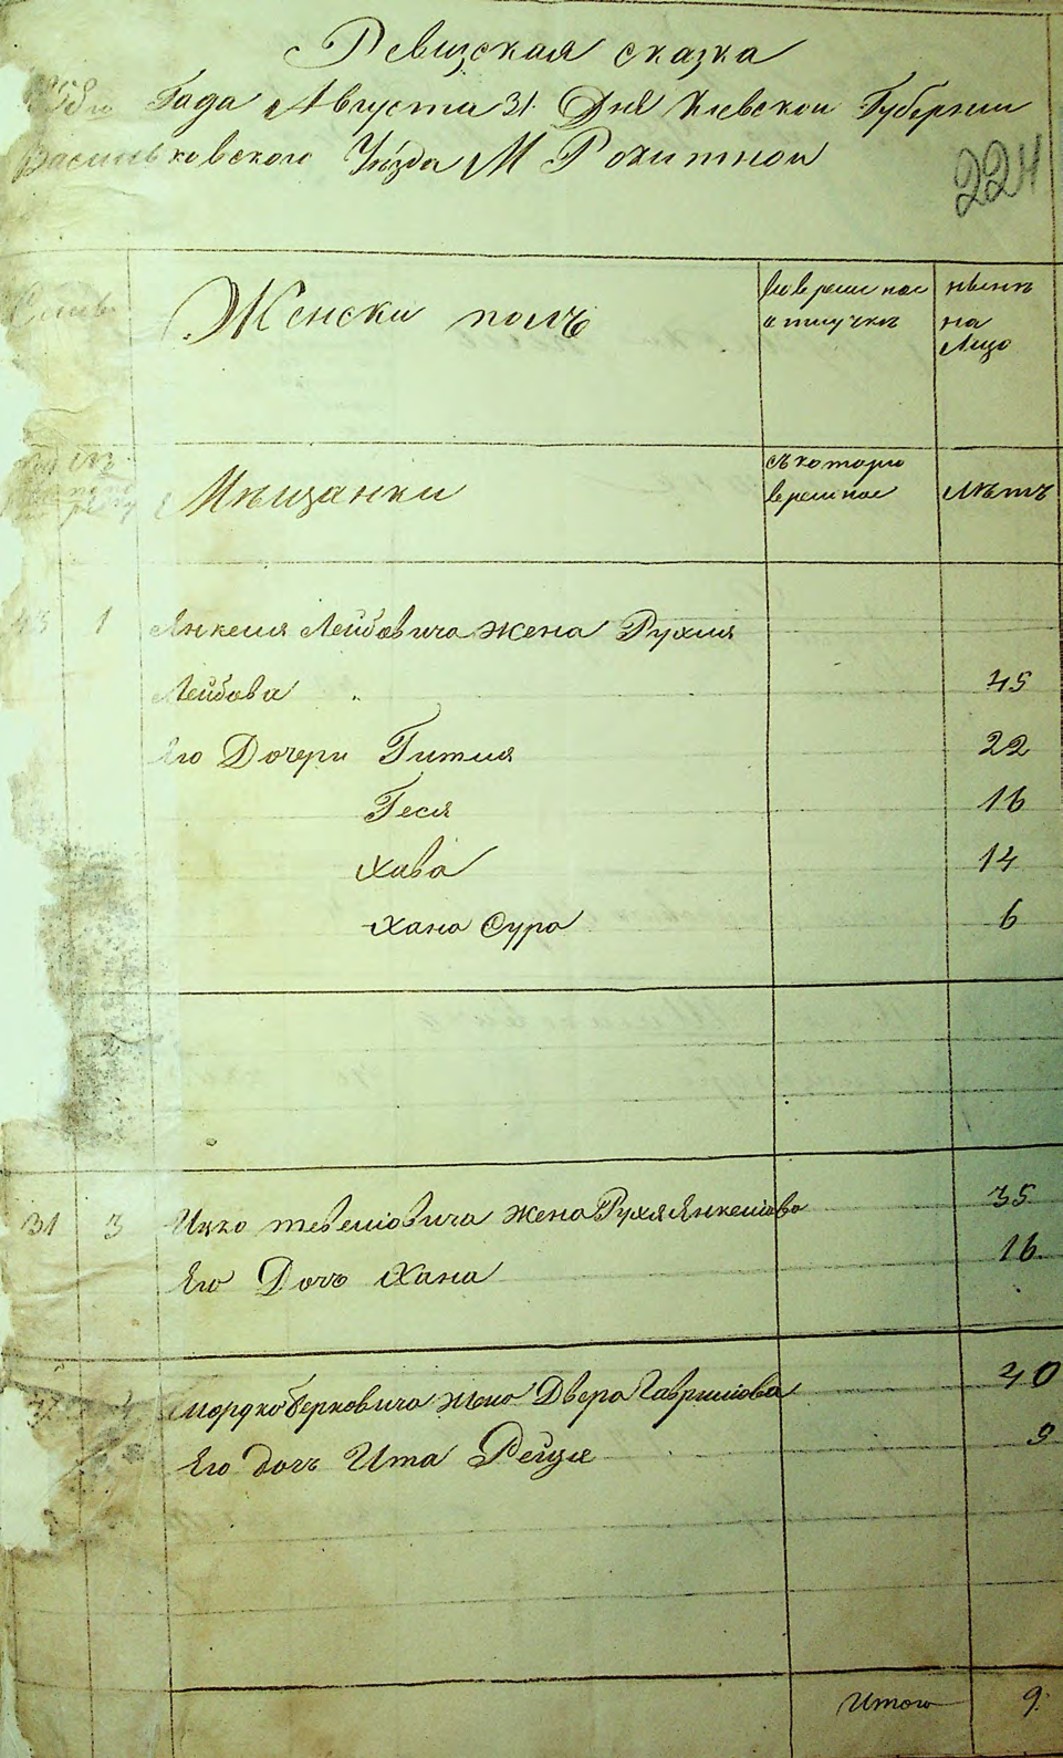 Ревизская сказка
Года Августа 31 Дня Киевской Губернии
Васильковского Уѣзда М Рокитной
224
Женски полъ
во временной отлучкѣ
нынѣ на Лицо
Мѣщанки
съ котори времиной
лѣтъ
43 1 Янкеля Лейбовича жена Рухля
Лейбова 45
Его Дочери Гитля 22
Геся 16
Хава 14
Хана Сура 6
2
31 3 Ицко тевелiовича жена Рухля Янкелiова 35
Его Дочъ Хана 16
Мордко Берковича жена Двера Гаврилiова 40
Его дочъ Ита Рейзя 9
Итого 9